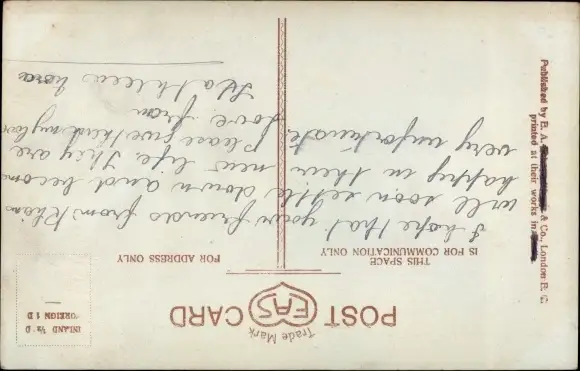 POST CARD
Trade Mark
EAS
THIS SPACE
IS FOR COMMUNICATION ONLY
FOR ADDRESS ONLY
INLAND ½ D
FOREIGN 1 D
I hope that your friends from Rhine
will soon settle down and become
happy in their new life. They are
very unfortunate. Please give
Love from
Kathleen
Published by E. A. & Co., London E. C.
printed at their works in